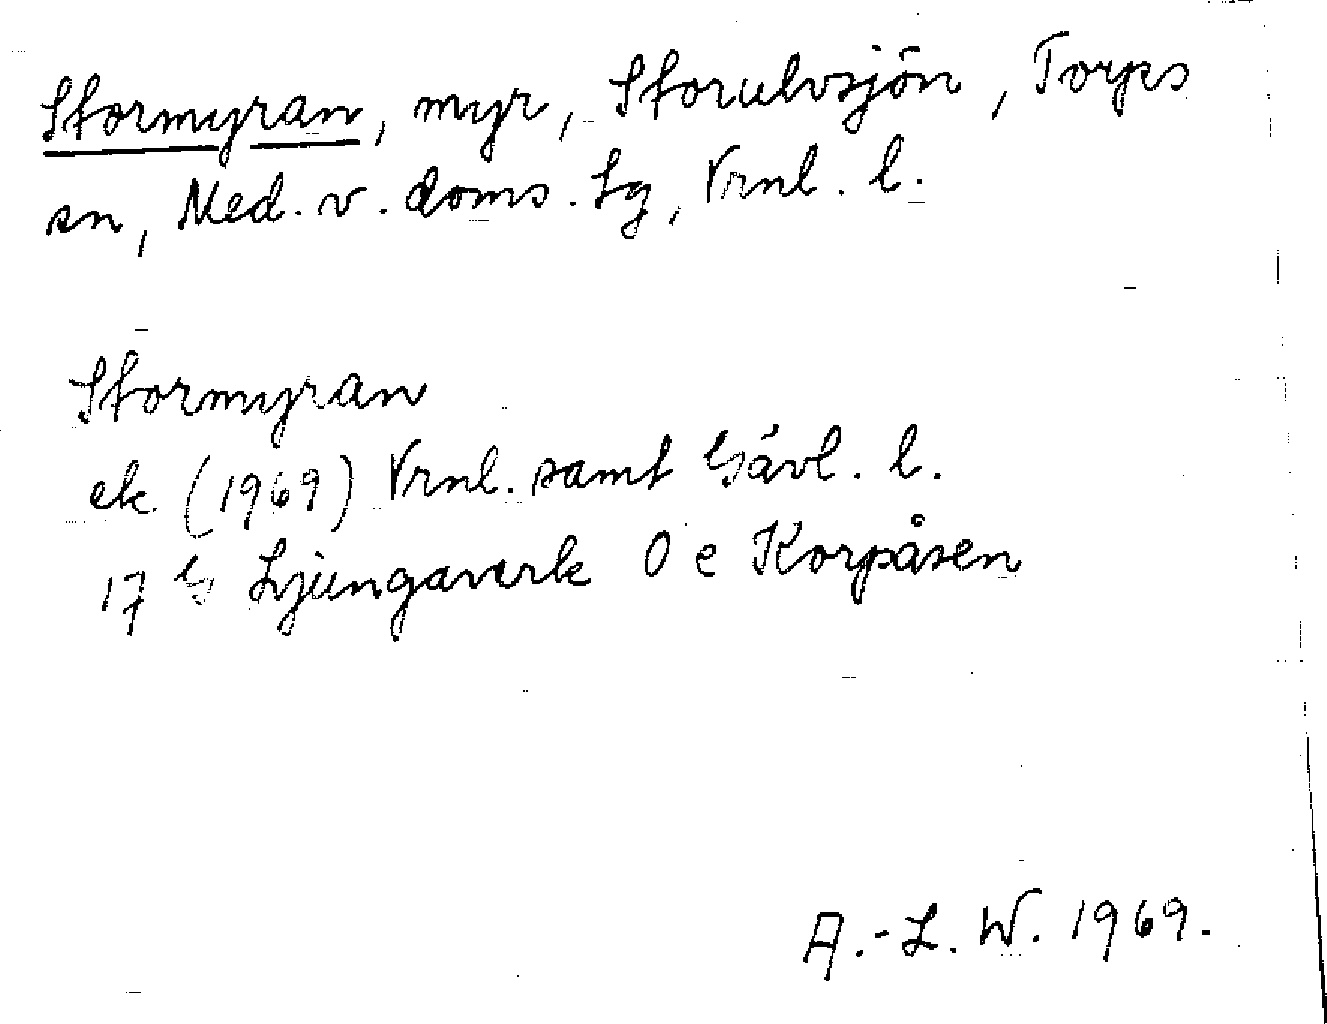 Stormyran, myr, Storulvsjön, Torps
sn, Med. v. doms. lg, Vrnl. l.
Stormyran
ek. (1969) Vrnl. samt Gävl. l.
17 G Ljungaverk 0 e Korpåsen
A.-L. W. 1969.